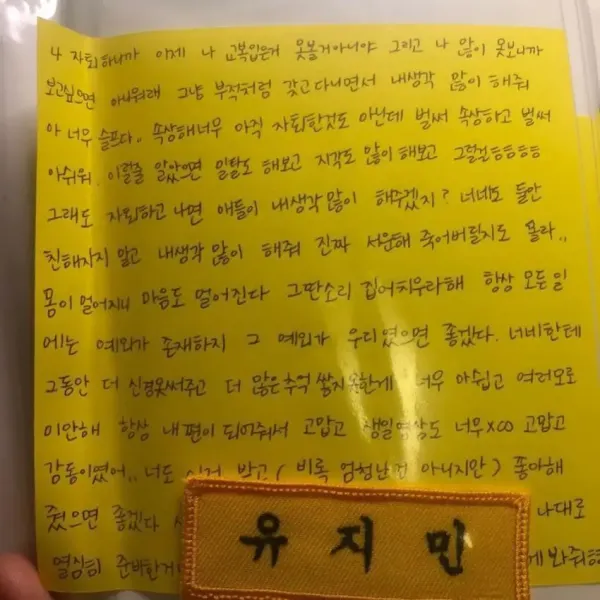 나 자퇴하니까 이제 나 교복입은거 못볼거아니야 그리고 나 많이 못보니까
보고싶으면 아쉬워해 그냥 부적처럼 갖고다니면서 내생각 많이 해줘
아 너무 슬프다. 속상해너무 아직 자퇴한것도 아닌데 벌써 속상하고 벌써
아쉬워. 이럴줄 알았으면 일탈도 해보고 지각도 많이 해보고 그럴걸ㅎㅎㅎㅎ
그래도 자퇴하고 나면 애들이 내생각 많이 해주겠지? 너네도 둘만
친해지지 말고 내생각 많이 해줘 진짜 서운해 죽어버릴지도 몰라..
몸이 멀어지니 마음도 멀어진다 그딴소리 집어치우라해 항상 모든일
에는 예외가 존재하지 그 예외가 우리였으면 좋겠다. 너네한테
그동안 더 신경못써주고 더 많은추억 쌓지못한게 너무 아쉽고 여러모로
미안해 항상 내편이 되어줘서 고맙고 생일영상도 너무x∞ 고맙고
감동이였어.. 너도 이거 받고 (비록 엄청난건 아니지만) 좋아해
줬으면 좋겠다 나대로
열심히 준비한거 게 봐줘ㅎ
유지민